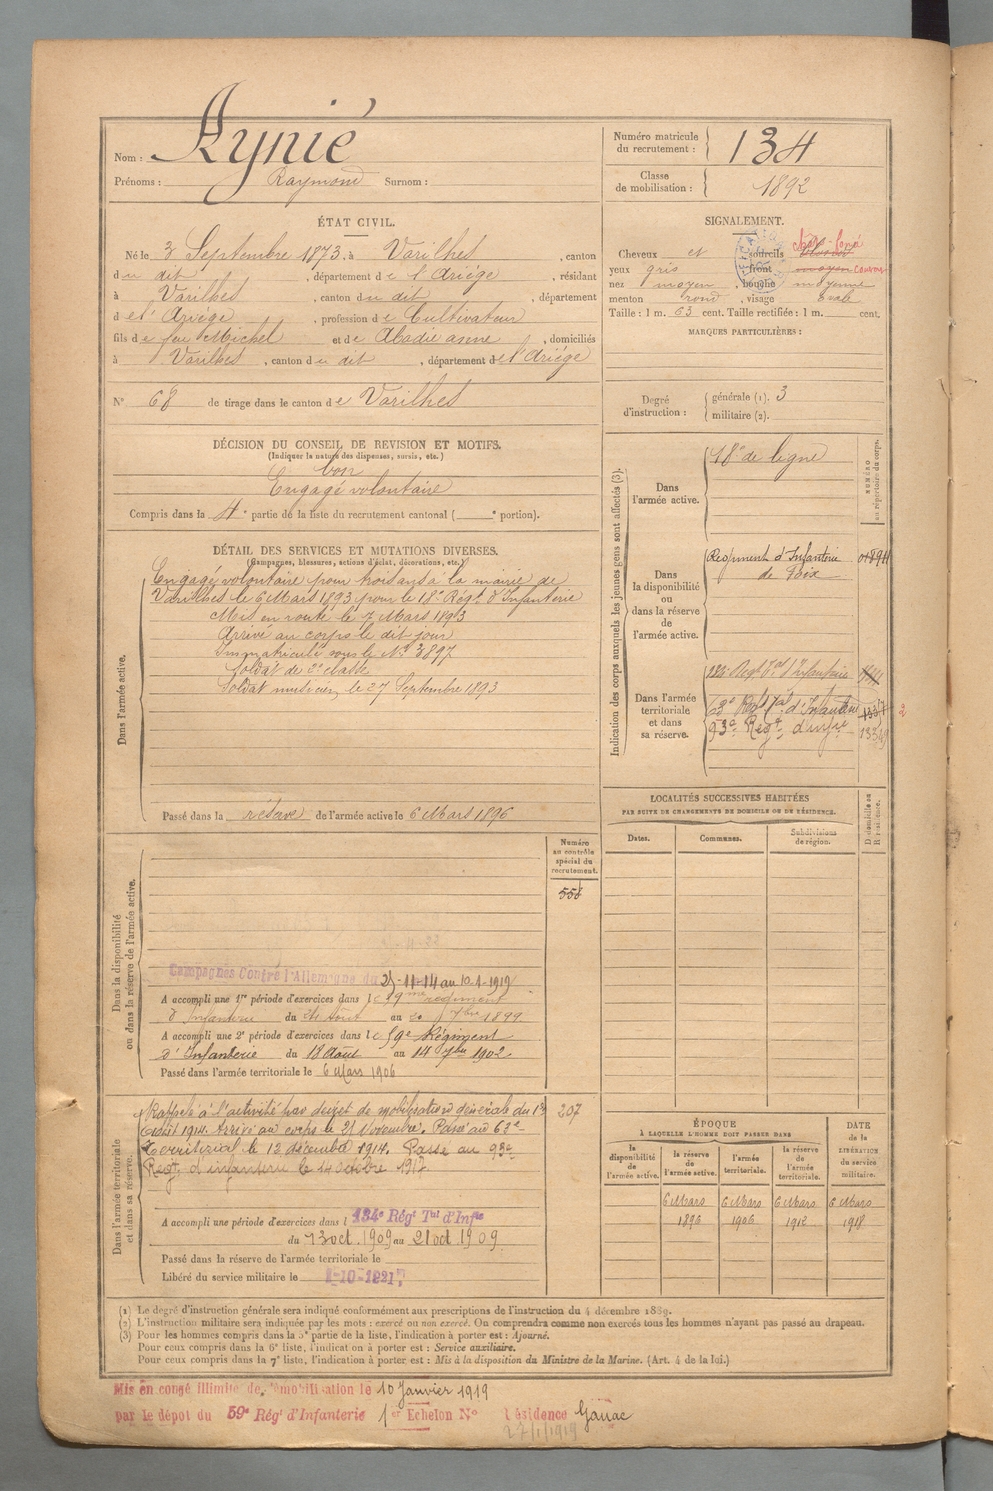 Nom : Aynié
Prénoms : Raymond Surnom :
Numéro matricule du recrutement : 134
Classe de mobilisation : 1892
ÉTAT CIVIL.
Né le 3 Septembre 1873, à Varilhes, canton
du dit, département de l'Ariège, résidant
à Varilhes, canton du dit, département
de l'Ariège, profession de Cultivateur
fils de feu Michel et de Abadie anne, domiciliés
à Varilhes, canton de dit, département de l'Ariège
N° 68 de tirage dans le canton de Varilhes
SIGNALEMENT.
Cheveux et sourcils
yeux gris, front moyen
nez moyen, bouche moyenne
menton rond, visage ovale
Taille : 1 m. 63 cent. Taille rectifiée : 1 m. cent.
MARQUES PARTICULIÈRES :
Degré d'instruction : générale (1). 3
militaire (2).
DÉCISION DU CONSEIL DE REVISION ET MOTIFS.
(Indiquer la nature des dispenses, sursis, etc.)
bon
Engagé volontaire
Compris dans la 4e partie de la liste du recrutement cantonal ( e portion).
DÉTAIL DES SERVICES ET MUTATIONS DIVERSES.
(Campagnes, blessures, actions d'éclat, décorations, etc.)
Dans l'armée active.
Engagé volontaire pour trois ans à la mairie de
Varilhes le 6 Mars 1893 pour le 18e Régt. d'Infanterie
Mis en route le 7 Mars 1893
Arrivé au corps le dit jour
Immatriculé sous le N° 3897
Soldat de 2e classe
Soldat musicien le 27 Septembre 1893
Passé dans la réserve de l'armée active le 6 Mars 1896
Indication des corps auxquels les jeunes gens sont affectés (3).
NUMÉRO au répertoire du corps.
Dans l'armée active.
18e de ligne
Dans la disponibilité ou dans la réserve de l'armée active.
Régiment d'Infanterie
de Foix
Dans l'armée territoriale et dans sa réserve.
134 Régt Tal d'Infanterie
63e Regt Tal d'Infanterie
93e Regt. d'infie
LOCALITÉS SUCCESSIVES HABITÉES
PAR SUITE DE CHANGEMENTS DE DOMICILE OU DE RÉSIDENCE.
Dates. Communes. Subdivisions de région. D domicile ou R résidence.
Dans la disponibilité ou dans la réserve de l'armée active.
Numéro au contrôle spécial du recrutement.
558
Campagnes Contre l'Allemagne du 21-11-14 au 10-1-1919
A accompli une 1re période d'exercices dans le 59me régiment
d'Infanterie du 24 Août au 20 7bre 1899
A accompli une 2e période d'exercices dans le 59e Régiment
d'Infanterie du 18 Août au 14 7bre 1902
Passé dans l'armée territoriale le 6 Mars 1906
Dans l'armée territoriale et dans sa réserve.
Rappelé à l'activité par décret de mobilisation générale du 1er
Août 1914. Arrivé au corps le 21 Novembre. Passé au 63e
Territorial le 12 décembre 1914. Passé au 93e
Regt. d'infanterie le 14 octobre 1917
207
A accompli une période d'exercices dans l 134e Régt Tal d'Infie
du 13 oct. 1909 au 21 oct. 1909.
Passé dans la réserve de l'armée territoriale le
Libéré du service militaire le 1-10-1921
ÉPOQUE
À LAQUELLE L'HOMME DOIT PASSER DANS
la disponibilité de l'armée active. la réserve de l'armée active. l'armée territoriale. la réserve de l'armée territoriale. DATE de la LIBÉRATION du service militaire.
6 Mars 1896 6 Mars 1906 6 Mars 1912 6 Mars 1918
(1) Le degré d'instruction générale sera indiqué conformément aux prescriptions de l'instruction du 4 décembre 1889.
(2) L'instruction militaire sera indiquée par les mots : exercé ou non exercé. On comprendra comme non exercés tous les hommes n'ayant pas passé au drapeau.
(3) Pour les hommes compris dans la 5e partie de la liste, l'indication à porter est : Ajourné.
Pour ceux compris dans la 6e liste, l'indication à porter est : Service auxiliaire.
Pour ceux compris dans la 7e liste, l'indication à porter est : Mis à la disposition du Ministre de la Marine. (Art. 4 de la loi.)
Mis en congé illimité de démobilisation le 10 Janvier 1919
par le dépot du 59e Régt d'Infanterie 1er Echelon N° résidence Ganac
27/1/1919